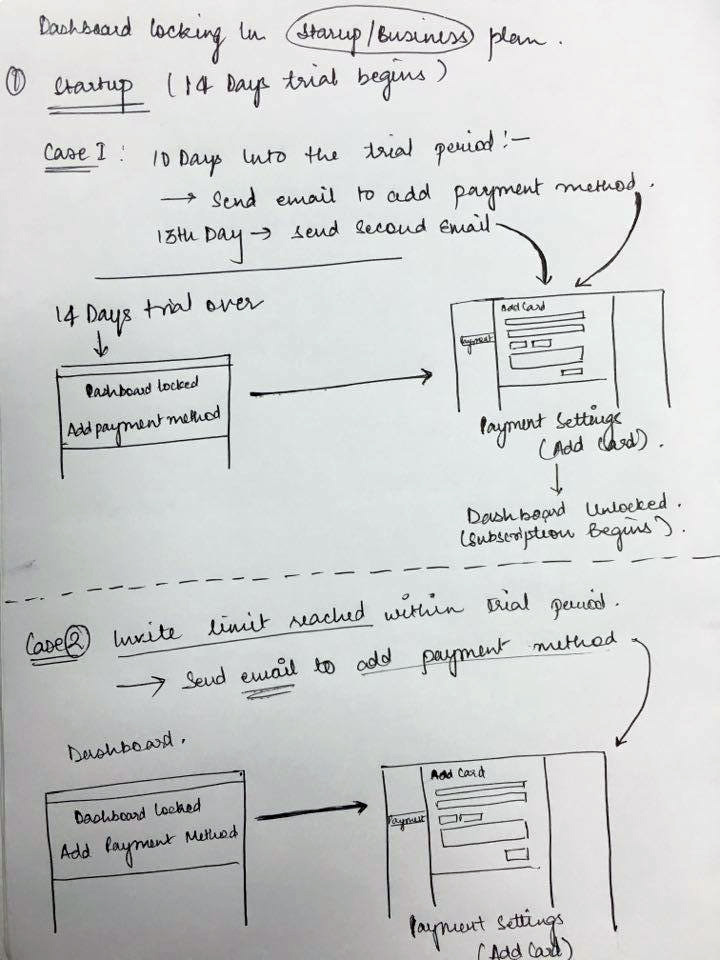 Dashboard locking in Starup/Business plan.
① Startup (14 Days trial begins)
Case I : 10 Days into the trial period :-
→ Send email to add payment method.
13th Day → send second Email
14 Days trial over
Dashboard locked
Add payment method
Add Card
Payment
Payment Settings
(Add Card).
Dashboard Unlocked.
(Subscription Begins).
Case ② Invite limit reached within trial period.
→ Send email to add payment method
Dashboard.
Dashboard Locked
Add Payment Method
Add Card
Payment
Payment Settings
(Add Card)